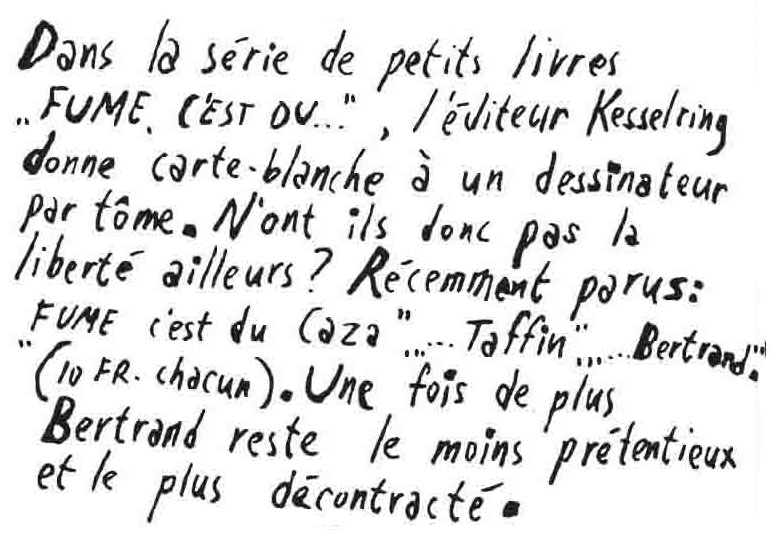 Dans la série de petits livres
„FUME, C'EST DU...", l'éditeur Kesselring
donne carte-blanche à un dessinateur
par tôme. N'ont ils donc pas la
liberté ailleurs? Récemment parus:
„FUME c'est du Caza" „... Taffin", „... Bertrand".
(10 FR. chacun). Une fois de plus
Bertrand reste le moins prétentieux
et le plus décontracté.